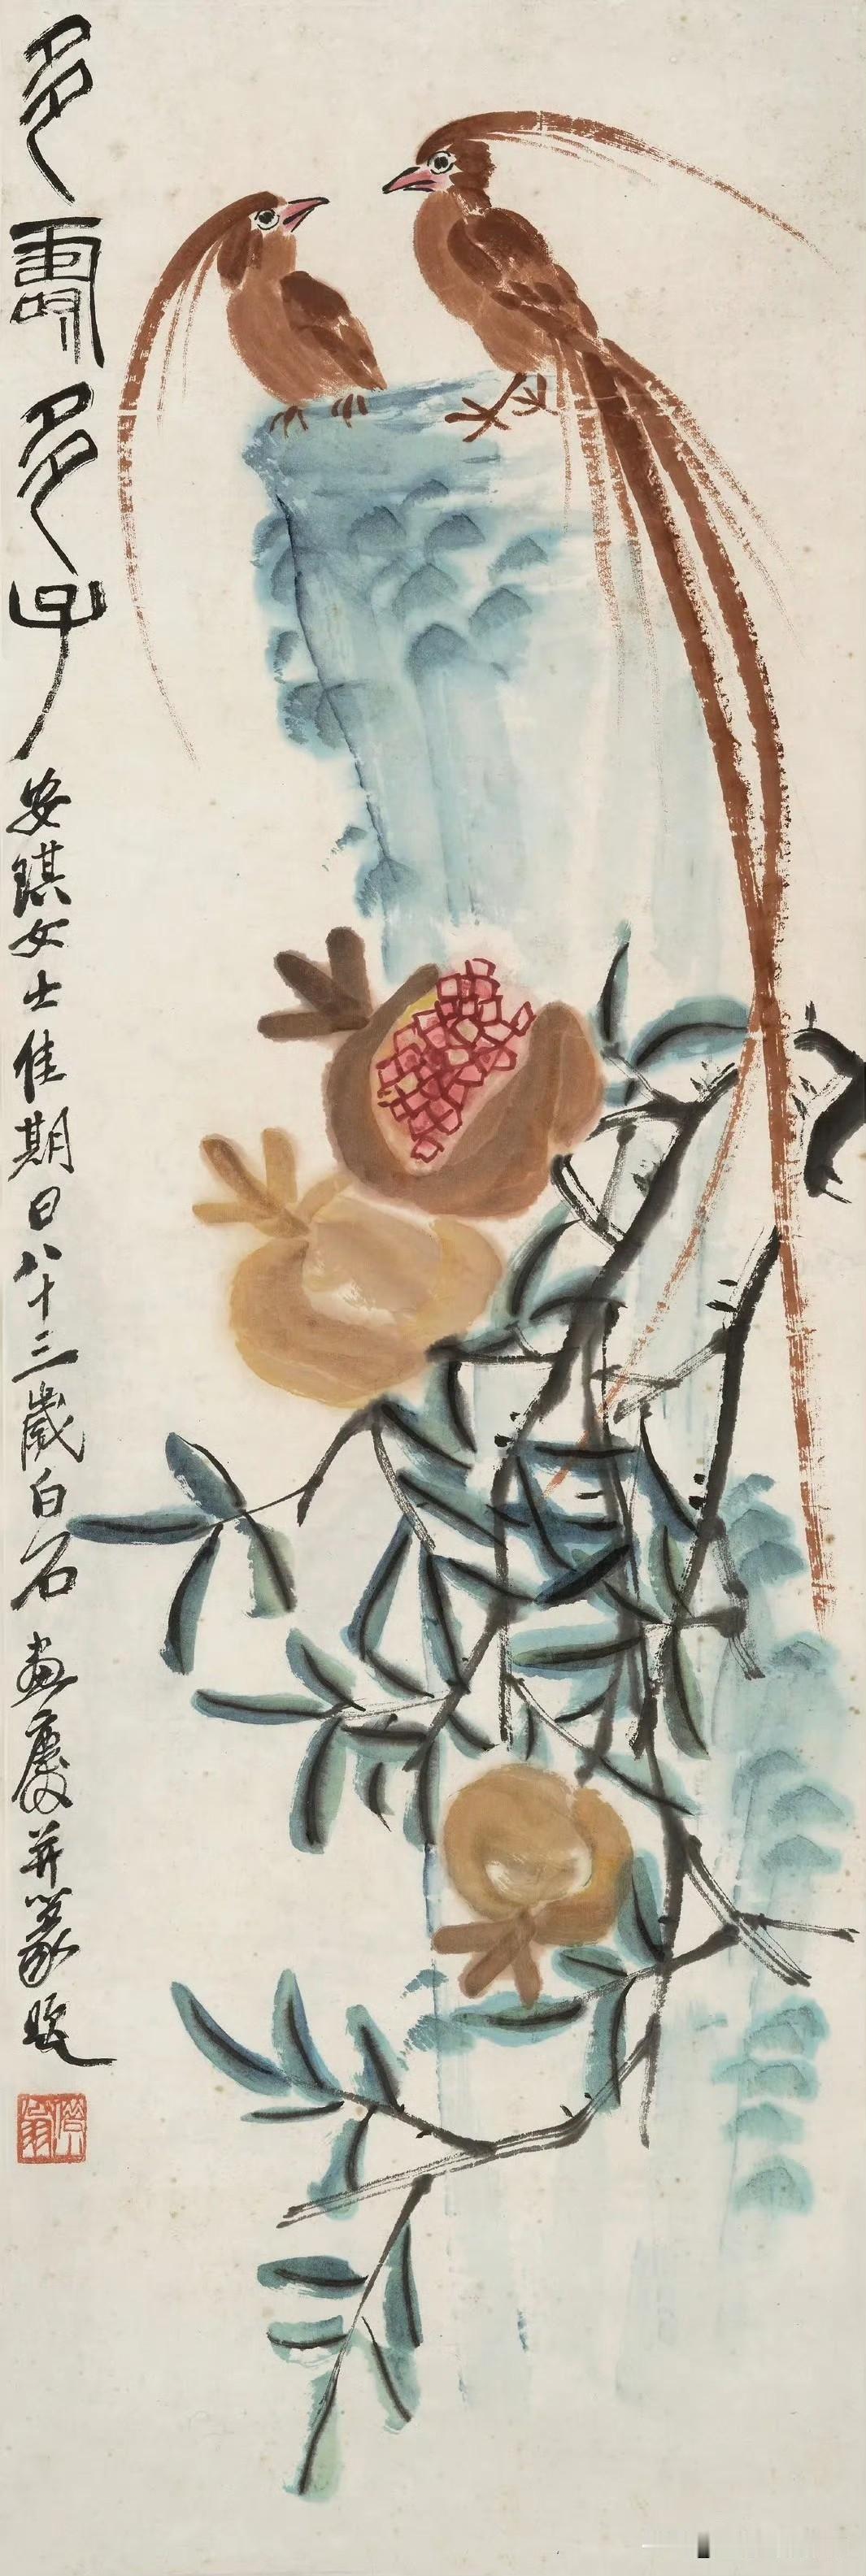 多壽多子
安琪女士佳期日八十三歲白石畫慶并篆題